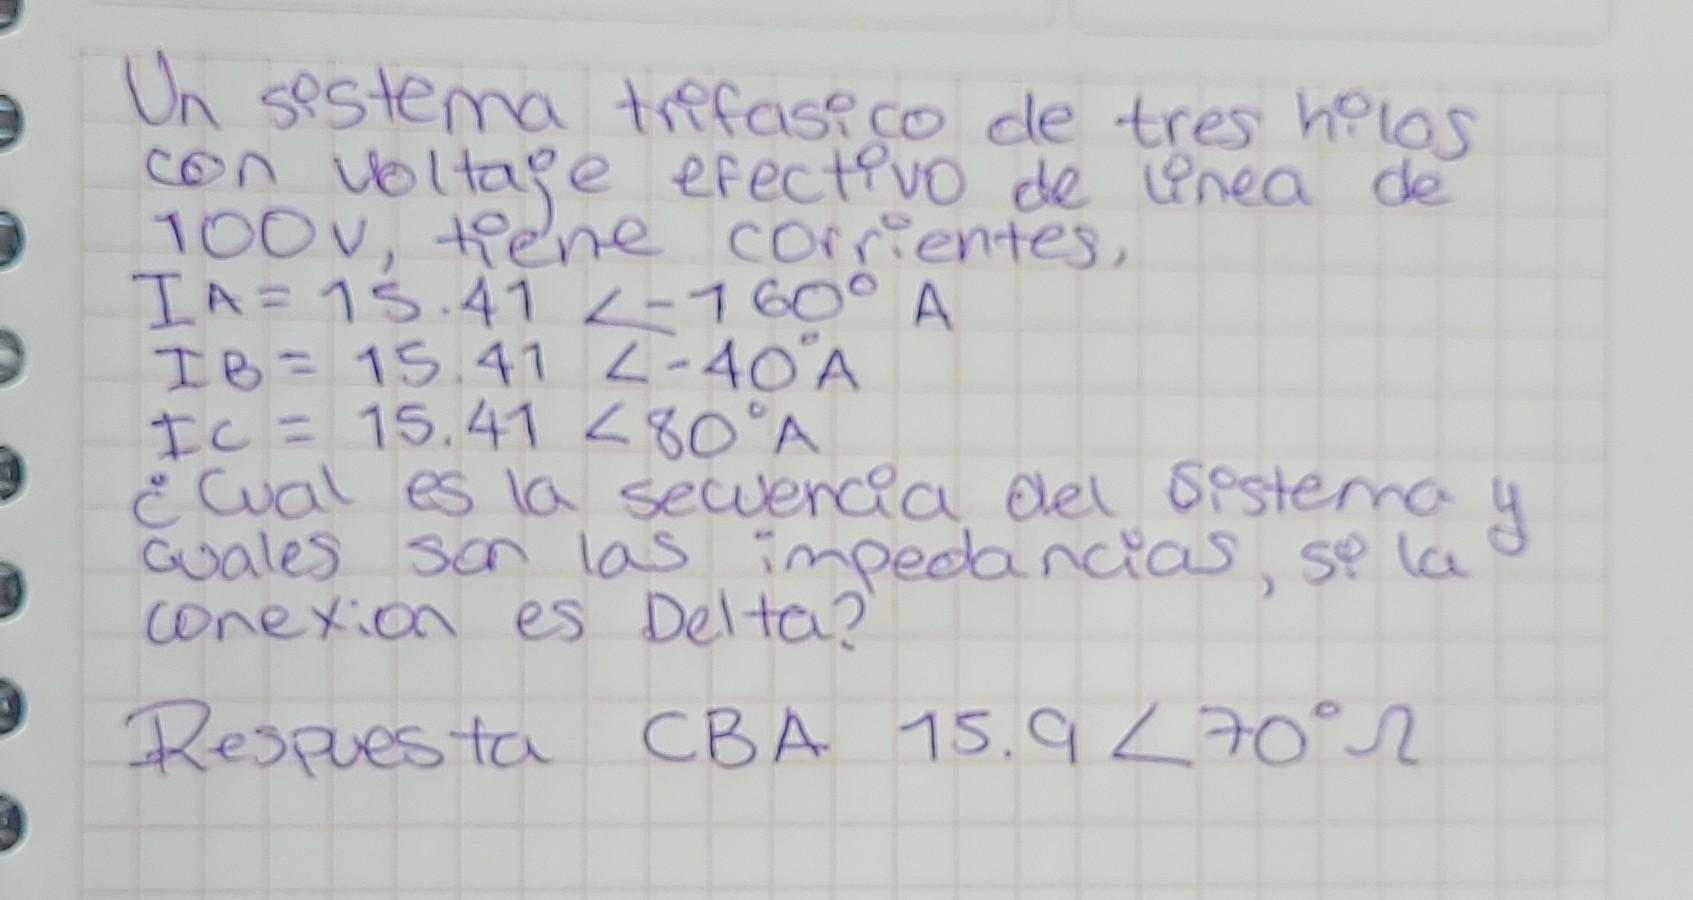 Un sistema trifasico de tres hilos
con voltaje efectivo de linea de
100v, tiene corrientes,
IA = 15.41 ∠-160° A
IB = 15.41 ∠-40° A
IC = 15.41 ∠80° A
¿Cual es la secuencia del sistema y
cuales son las impedancias, si la
conexion es Delta?
Respuesta CBA 15.9 ∠70° Ω